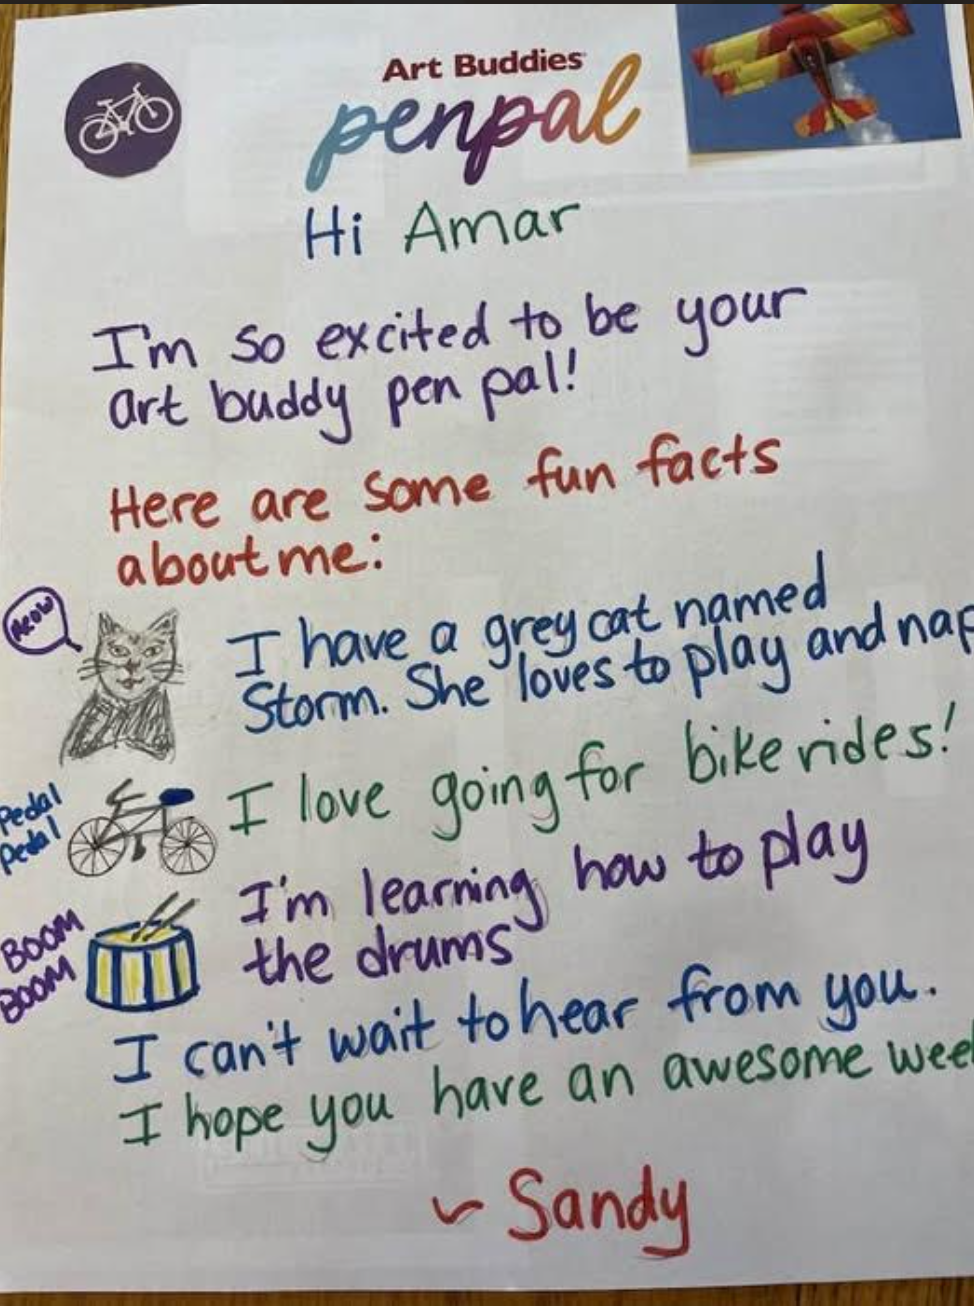 Art Buddies
penpal
Hi Amar
I'm so excited to be your
art buddy pen pal!
Here are some fun facts
about me:
MEOW
I have a grey cat named
Storm. She loves to play and nap
Pedal
Pedal
I love going for bike rides!
BOOM
BOOM
I'm learning how to play
the drums
I can't wait to hear from you.
I hope you have an awesome wee
~ Sandy